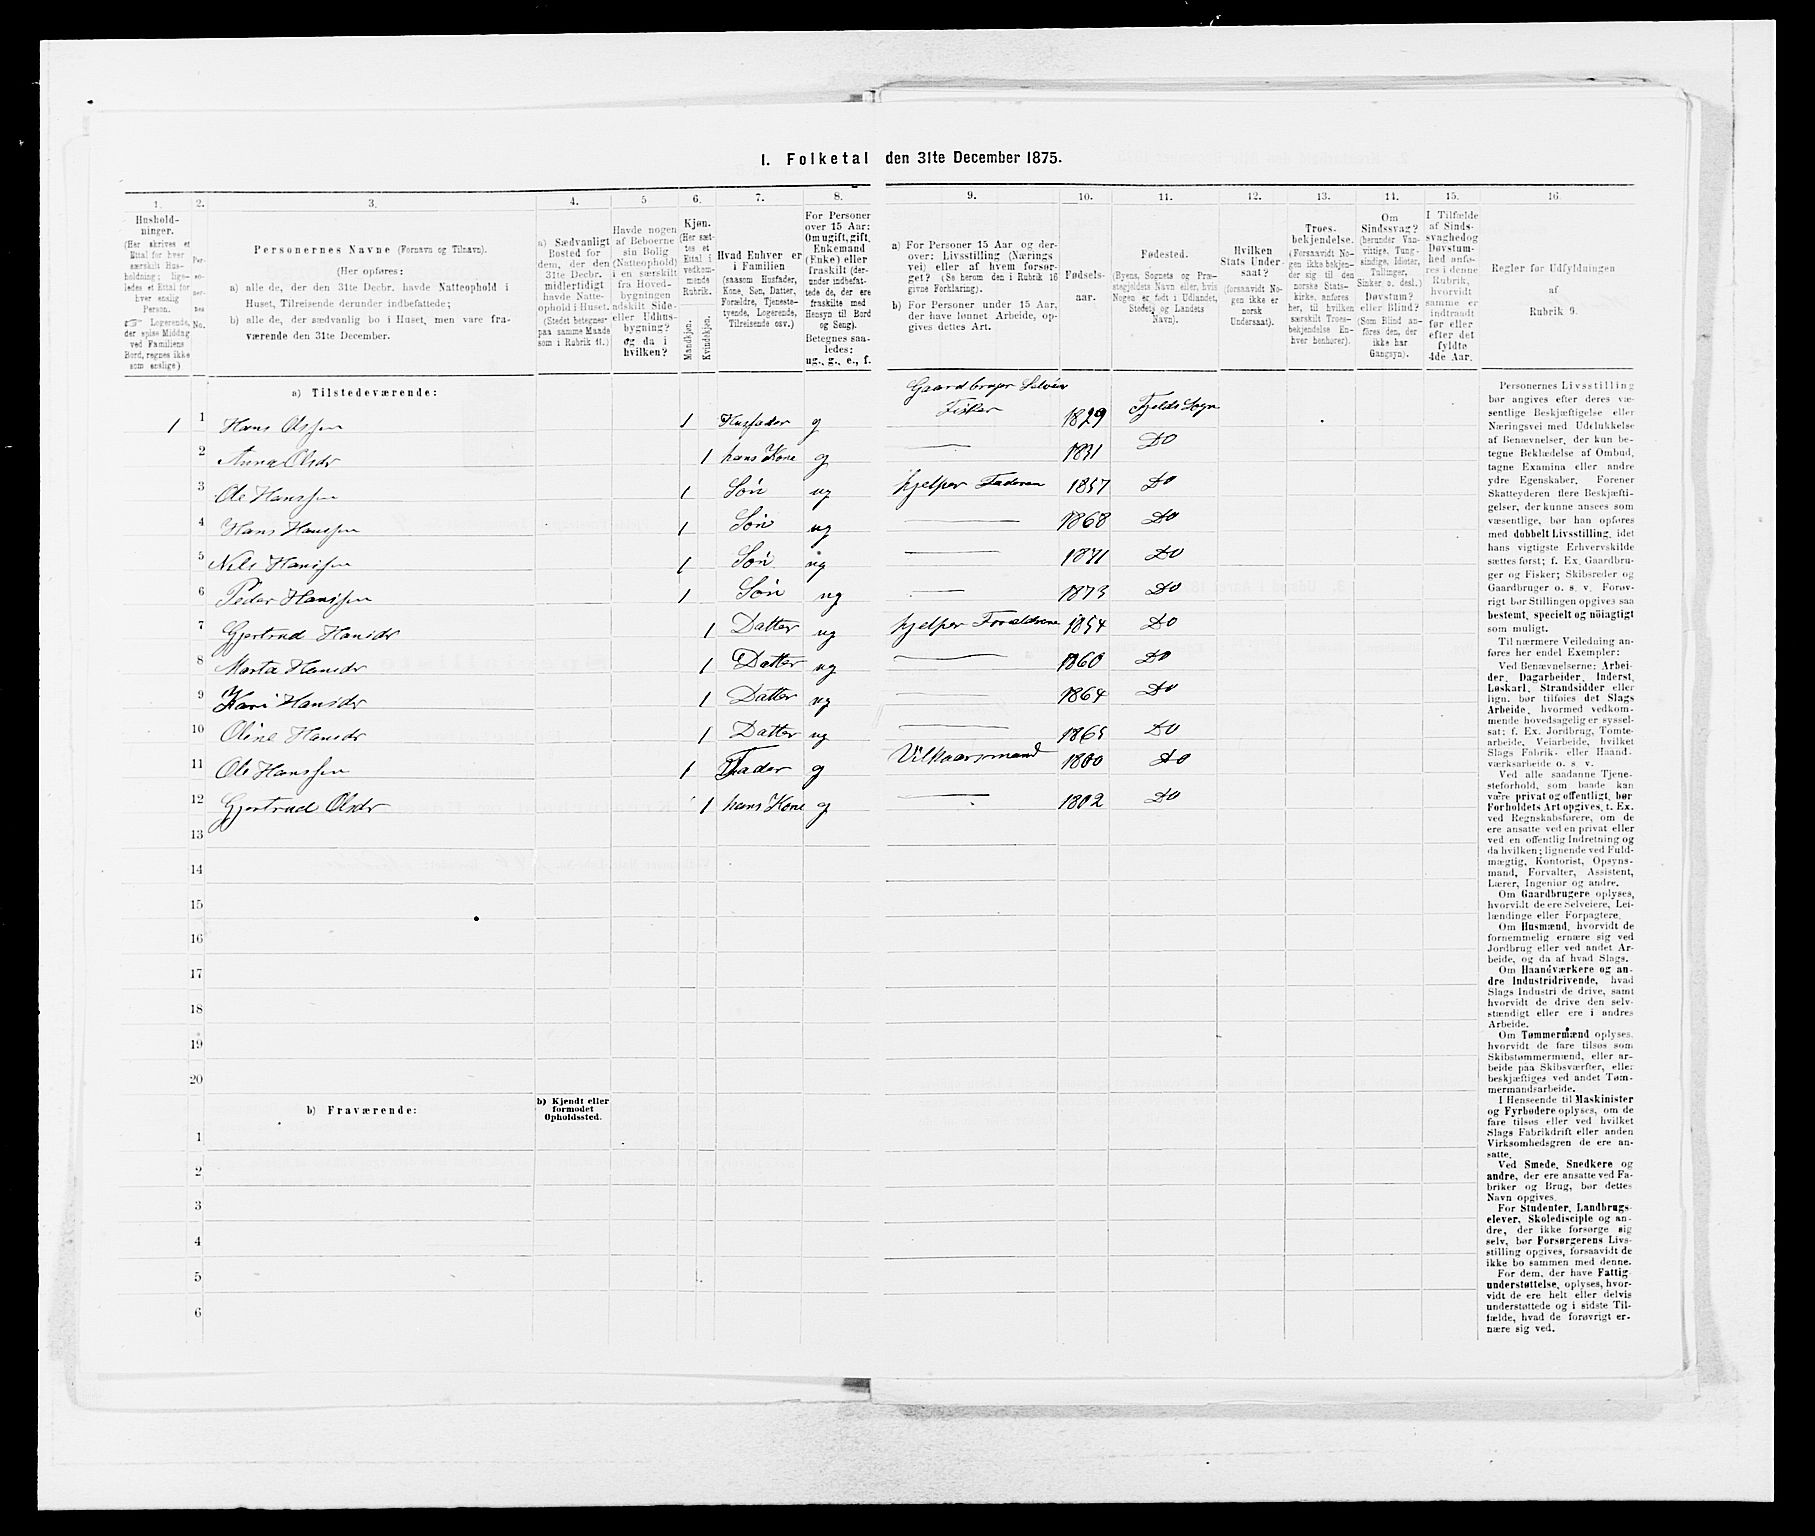 1. Folketal den 31te December 1875.
1. 2. 3. 4. 5 6. 7. 8. 9. 10. 11. 12. 13. 14. 15. 16.
Hushold-
ninger.
(Her skrives et
Ettal for hver
særskilt Hus-
holdning; lige-
ledes et Ettal for
hver enslig
Person.
☞ Logerende,
der spise Middag
ved Familiens
Bord, regnes ikke
som enslige)
Per-
so-
ner-
nes
No.
Personernes Navne (Fornavn og Tilnavn).
(Her opføres:
a) alle de, der den 31te Decbr. havde Natteophold i
Huset, Tilreisende derunder indbefattede;
b) alle de, der sædvanlig bo i Huset, men vare fra-
værende den 31te December.
a) Sædvanligt
Bosted for
dem, der den
31te Decbr.
midlertidigt
havde Natte-
ophold i Huset.
(Stedet betegnes
paa samme Maade
som i Rubrik 11.)
Havde nogen
af Beboerne
sin Bolig
(Natteophold)
i en særskilt
fra Hoved-
bygningen
adskilt Side-
eller Udhus-
bygning?
og da i
hvilken?
Kjøn.
(Her sæt-
tes et
Ettal i
vedkom-
mende
Rubrik.
Mandkjøn.
Kvindekjøn.
Hvad Enhver er
i Familien
(saasom Husfader,
Kone, Søn, Datter,
Forældre, Tjeneste-
tyende, Logerende,
Tilreisende osv.)
For Personer
over 15 Aar:
Om ugift, gift,
Enkemand
(Enke) eller
fraskilt (der-
under indbefat-
tede de, der ere
fraskilte med
Hensyn til Bord
og Seng).
Betegnes saa-
ledes:
ug., g., e., f.
a) For Personer 15 Aar og der-
over: Livsstilling (Nærings
vei) eller af hvem forsør-
get? (Se herom den i Rubrik 16
givne Forklaring).
b) For Personer under 15 Aar,
der have lønnet Arbeide, op-
gives dettes Art.
Fødsels-
aar.
Fødested.
(Byens, Sognets og Præ-
stegjeldets Navn eller, hvis
Nogen er født i Udlandet,
Stedets og Landets
Navn).
Hvilken
Stats Under-
saat?
(forsaavidt No-
gen ikke er
norsk
Undersaat).
Troes-
bekjendelse.
(Forsaavidt No-
gen ikke bekjen-
der sig til den
norske Stats-
kirke, anføres
her, til hvilken
særskilt Troes-
bekjendelse En-
hver henhører).
Om
Sindssvag?
(herunder Van-
vittige, Tung-
sindige, Idioter,
Tullinger,
Sinker o. desl.)
Døvstum?
eller Blind?
(Som Blind an-
føres den, der
ikke har
Gangsyn).
I Tilfælde
af Sinds-
svaghed og
Døvstum-
hed anfø-
res i denne
Rubrik,
hvorvidt
samme er
indtraadt
før eller
efter det
fyldte
4de Aar.
Regler før Udfyldningen
af
Rubrik 9.
a) Tilstedeværende:
1 1 Hans Olssen 1 Husfader g Gaardbruger Selveier Fisker 1829 Fjelds Sogn
2 Anna Olsdr 1 hans Kone g 1831 Do
3 Ole Hanssen 1 Søn ug hjelper Faderen 1857 Do
4 Hans Hanssen 1 Søn ug 1868 Do
5 Nils Hanssen 1 Søn ug 1871 Do
6 Peder Hanssen 1 Søn ug 1873 Do
7 Gjertrud Hansdr 1 Datter ug hjelper Forældrene 1854 Do
8 Marta Hansdr 1 Datter ug 1860 Do
9 Kari Hansdr 1 Datter ug 1864 Do
10 Oline Hansdr 1 Datter ug 1865 Do
11 Ole Hanssen 1 Fader g Vilkaarsmand 1800 Do
12 Gjertrud Olsdr 1 hans Kone g 1802 Do
13
14
15
16
17
18
19
20
b) Fraværende:
b) Kjendt eller
formodet
Opholdssted.
1
2
3
4
5
6
Personernes Livsstilling
bør angives efter deres væ-
sentlige Beskjæftigelse eller
Næringsvei med Udelukkelse
af Benævnelser, der kun be-
tegne Beklædelse af Ombud,
tagne Examina eller andre
ydre Egenskaber. Forener
Skatteyderen flere Beskjæfti-
gelser, der kunne ansees som
væsentlige, bør han opføres
med dobbelt Livsstilling, idet
hans vigtigste Erhvervskilde
sættes først; f. Ex. Gaardbru-
ger og Fisker; Skibsreder og
Gaardbruger o. s. v. Forøv-
rigt bør Stillingen opgives saa
bestemt, specielt og nöiagtigt
som muligt.
Til nærmere Veiledning an-
føres her endel Exempler:
Ved Benævnelserne: Arbei-
der, Dagarbeider, Inderst,
Løskarl, Strandsidder eller
lign. bør tilføies det Slags
Arbeide, hvormed vedkom-
mende hovedsagelig er syssel-
sat; f. Ex. Jordbrug, Tomte-
arbeide, Veiarbeide, hvilket
Slags Fabrik- eller Haand-
værksarbeide o. s. v.
Ved alle saadanne Tjene-
steforhold, som baade kan
være privat og offentligt, bør
Forholdets Art opgives, t. Ex.
ved Regnskabsførere, om de
ere ansatte ved en privat eller
ved en offentlig Indretning og
da hvilken; lignende ved Fuld-
mægtig, Kontorist, Opsyns-
mand, Forvalter, Assistent,
Lærer, Ingeniør og andre.
Om Gaardbrugere oplyses,
hvorvidt de ere Selveiere, Lei-
lændinge eller Forpagtere.
Om Husmænd, hvorvidt de
fornemmelig ernære sig ved
Jordbrug eller ved andet Ar-
beide, og da af hvad Slags.
Om Haandværkere og an-
dre Industridrivende, hvad
Slags Industri de drive, samt
hvorvidt de drive den selv-
stændigt eller ere i andres
Arbeide.
Om Tømmermænd oplyses,
hvorvidt de fare tilsøs som
Skibstømmermænd, eller ar-
beide paa Skibsværfter, eller
beskjæftiges ved andet Tøm-
mermandsarbeide.
I Henseende til Maskinister
og Fyrbødere oplyses, om de
fare tilsøs eller ved hvilket
Slags Fabrikdrift eller anden
Virksomhedsgren de ere an-
satte.
Ved Smede, Snedkere og
andre, der ere ansatte ved Fa-
briker og Brug, bør dettes
Navn opgives.
For Studenter, Landbrugs-
elever, Skoledisciple og an-
dre, der ikke forsørge sig
selv, bør Forsørgerens Livs-
stilling opgives, forsaavidt de
ikke bo sammen med denne.
For dem, der have Fattig-
understøttelse, oplyses, hvor-
vidt de ere helt eller delvis
understøttede og i sidste Til-
fælde, hvad de forøvrigt er-
nære sig ved.